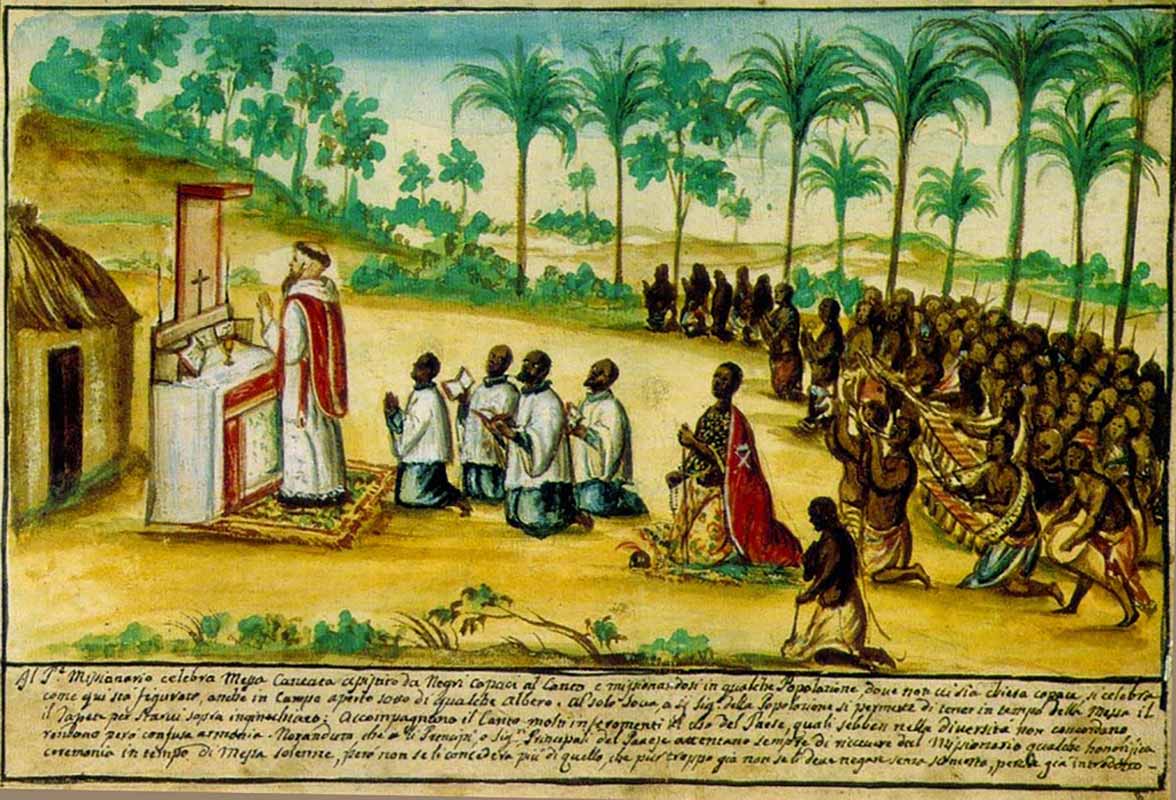 Il P.e Missionario celebra Messa Cantata assistito da Negri capaci al Canto e missionandosi in qualche Popolazione dove non vi sia chiesa capace, si celebra
come qui sta figurato, anche in Campo aperto sotto di qualche albero. Al solo Sova, o sig.e della Popolazione si permette di tener in tempo della Messa il
il Tapeto per starvi sopra inginochiato; Accompagnano il Canto molti instromenti ad uso del Paese, quali sebben nella diversità non concordano,
rendono però confusa armonia. Notando che i Principi, o Sig.ri Principali del Paese attentano sempre di ricevere dal Missionario qualche honorifica
ceremonia in tempo di Messa solenne, però non se li concederà più di quello, che pur troppo già non se li deve negare senza, perché già introdotto